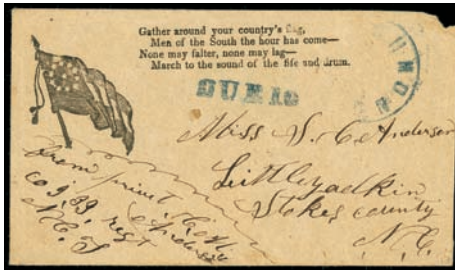 Gather around your country's flag,
Men of the South the hour has come—
None may falter, none may lag—
March to the sound of the fife and drum.
DUE 10
Miss S. C. Anderson
Little yadkin
Stokes county
N. C.
From privat
Co 9, 33, regt
N. C. S